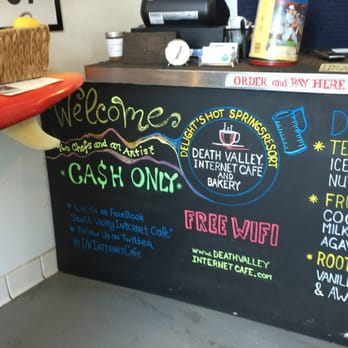 ORDER and PAY HERE
Welcome
Two Chefs and an Artist
CA$H ONLY
DELIGHT'S HOT SPRINGS RESORT
DEATH VALLEY
INTERNET CAFÉ
AND
BAKERY
FREE WIFI
WWW.DEATHVALLEY
INTERNETCAFE.COM
* Like Us on FaceBook
"Death Valley Internet Cafe"
* Follow Us on Twitter
@DVInternetCafe
D
* TE
ICE
N
* FR
COC
MILK
AGAV
* ROOT
VANILL
& AW